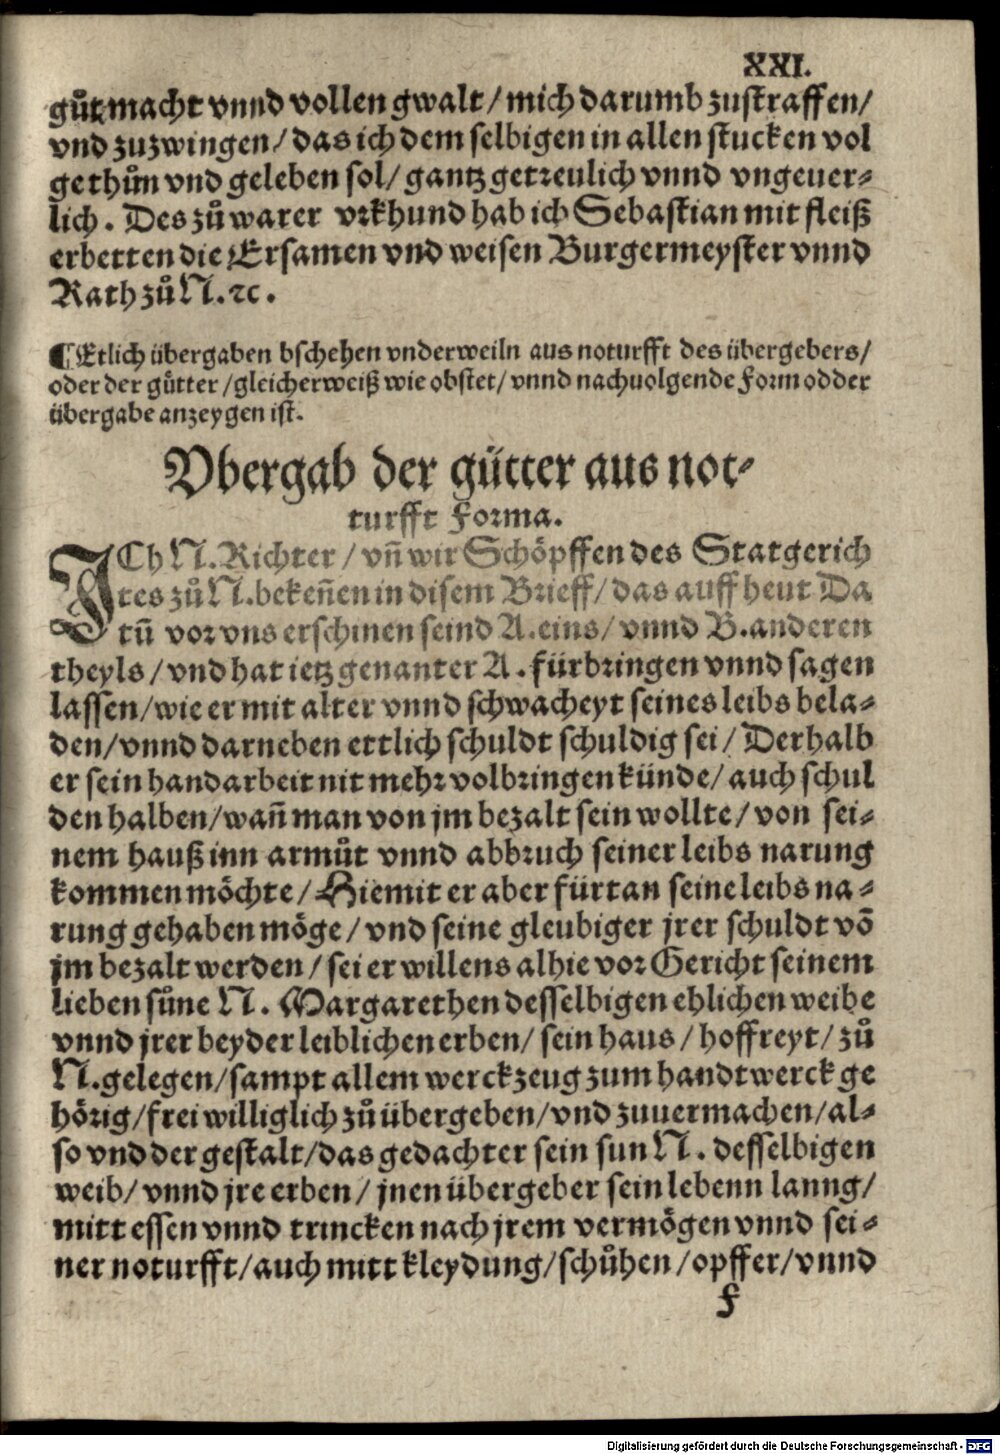 XXI.
gůt macht vnnd vollen gwalt / mich darumb zustraffen /
vnd zuzwingen / das ich dem selbigen in allen stucken vol
gethůn vnd geleben sol / gantz getreulich vnnd vngeuer⸗
lich. Des zů warer vrkhund hab ich Sebastian mit fleiß
erbetten die Ersamen vnd weisen Burgermeyster vnnd
Rath zů N. ꝛc.
¶ Etlich übergaben bschehen vnderweiln aus noturfft des übergebers /
oder der gütter / gleicherweiß wie obstet / vnnd nachuolgende Form od der
übergabe anzeygen ist.
Vbergab der gütter aus not⸗
turfft Forma.
ICh N. Richter / vn̄ wir Schöpffen des Statgerich
tes zů N. beken̄en in disem Brieff / das auff heut Da
tū vor vns erschinen seind A. eins / vnnd B. anderen
theyls / vnd hat ietz genanter A. fürbringen vnnd sagen
lassen / wie er mit alter vnnd schwacheyt seines leibs bela⸗
den / vnnd darneben ettlich schuldt schuldig sei / Derhalb
er sein handarbeit nit mehr volbringen künde / auch schul
den halben / wan̄ man von jm bezalt sein wollte / von sei⸗
nem hauß inn armůt vnnd abbruch seiner leibs narung
kommen möchte / Hiemit er aber fürtan seine leibs na⸗
rung gehaben möge / vnd seine gleubiger jrer schuldt vō
jm bezalt werden / sei er willens alhie vor Gericht seinem
lieben sůne N. Margarethen desselbigen ehlichen weibe
vnnd jrer beyder leiblichen erben / sein haus / hoffreyt / zů
N. gelegen / sampt allem werckzeug zum handtwerck ge
hörig / frei williglich zů übergeben / vnd zuuermachen / al⸗
so vnd der gestalt / das gedachter sein sun N. desselbigen
weib / vnnd jre erben / jnen übergeber sein lebenn lanng /
mitt essen vnnd trincken nach jrem vermögen vnnd sei⸗
ner noturfft / auch mitt kleydung / schůhen / opffer / vnnd
F
Digitalisierung gefördert durch die Deutsche Forschungsgemeinschaft - DFG